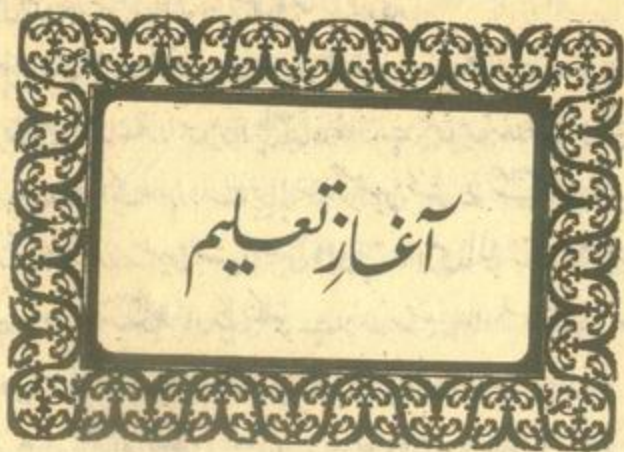 آغازِ تعلیم